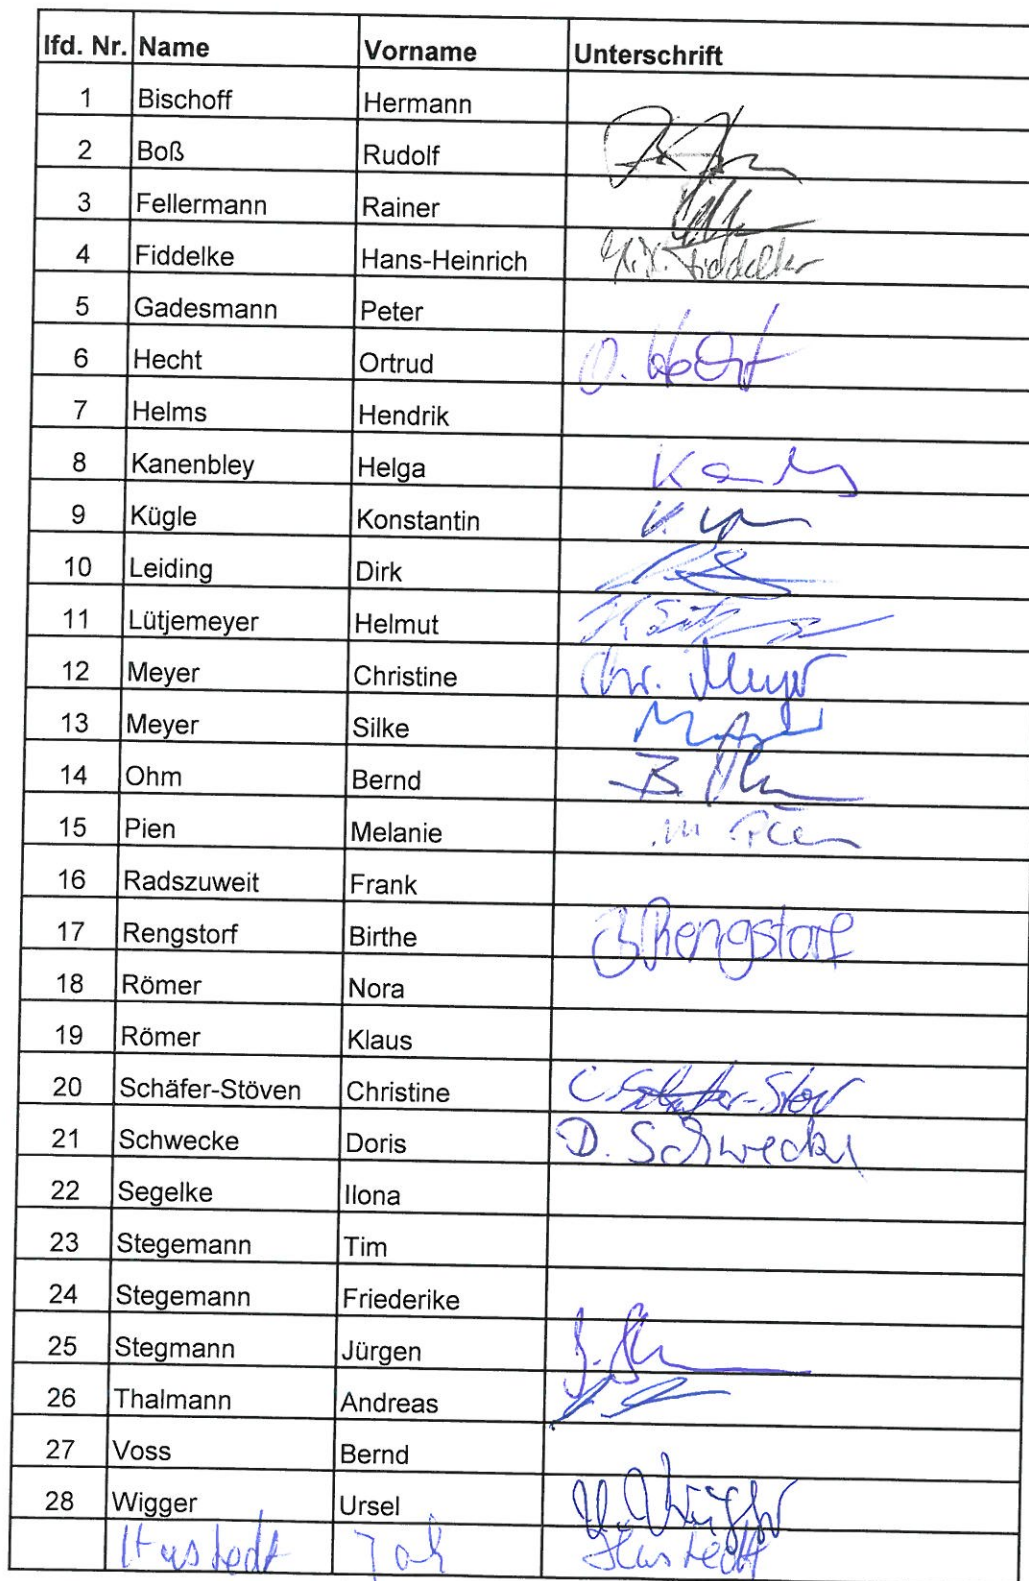 lfd. Nr. Name Vorname Unterschrift
1 Bischoff Hermann
2 Boß Rudolf
3 Fellermann Rainer
4 Fiddelke Hans-Heinrich Fiddelke
5 Gadesmann Peter
6 Hecht Ortrud O. Hecht
7 Helms Hendrik
8 Kanenbley Helga
9 Kügle Konstantin
10 Leiding Dirk
11 Lütjemeyer Helmut
12 Meyer Christine Chr. Meyer
13 Meyer Silke
14 Ohm Bernd B. Ohm
15 Pien Melanie M Pien
16 Radszuweit Frank
17 Rengstorf Birthe B Rengstorf
18 Römer Nora
19 Römer Klaus
20 Schäfer-Stöven Christine
21 Schwecke Doris D. Schwecke
22 Segelke Ilona
23 Stegemann Tim
24 Stegemann Friederike
25 Stegmann Jürgen
26 Thalmann Andreas
27 Voss Bernd
28 Wigger Ursel U. Wigger
Hustedt Hustedt